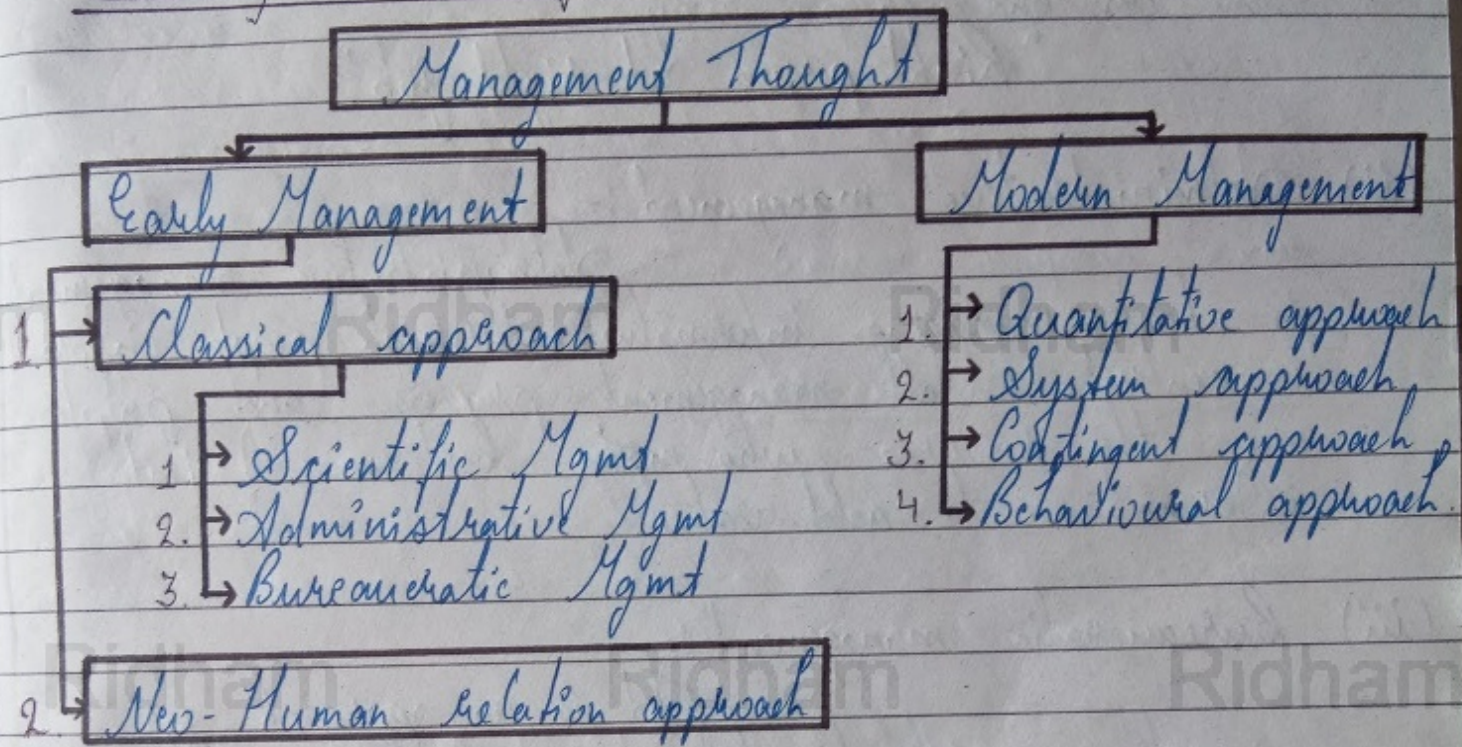 Management Thought
Early Management
Modern Management
1. Classical approach
1 Scientific Mgmt
2. Administrative Mgmt
3. Bureaucratic Mgmt
2. Neo-Human relation approach
1. Quantitative approach
2. System approach
3. Contingent approach
4. Behavioural approach.
Ridham
Ridham
Ridham
Ridham
Ridham